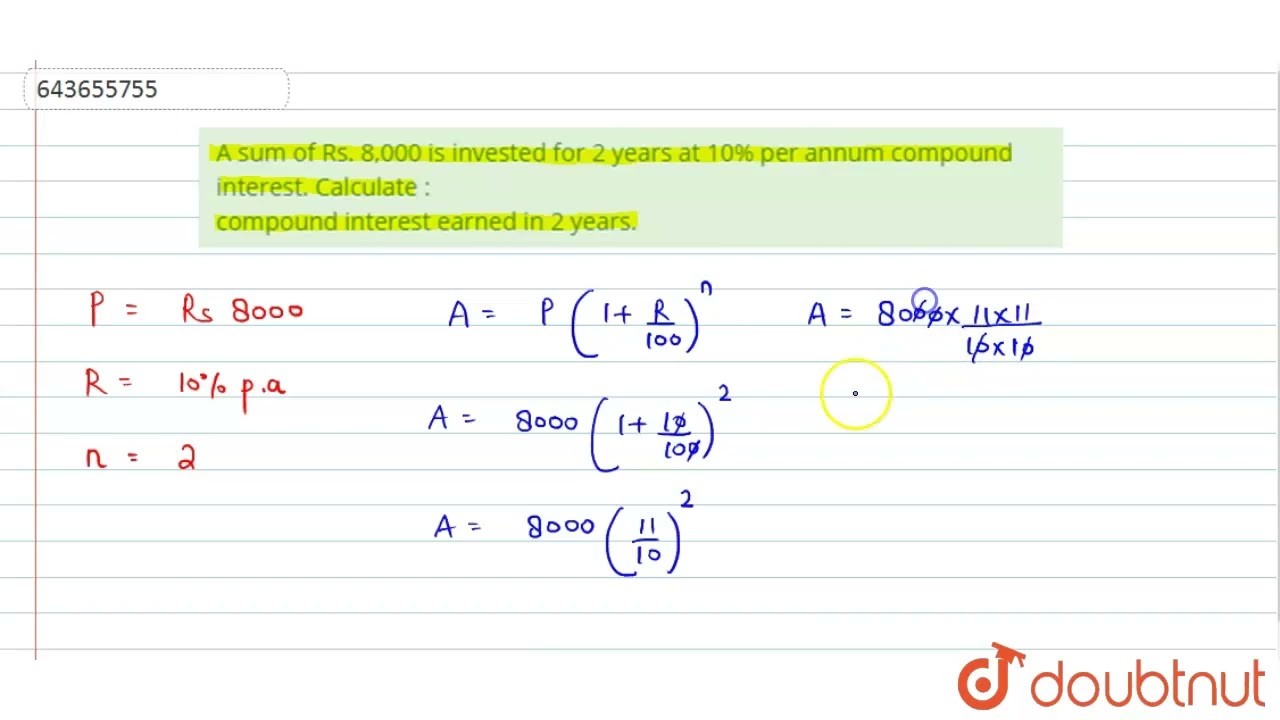 643655755
A sum of Rs. 8,000 is invested for 2 years at 10% per annum compound
interest. Calculate :
compound interest earned in 2 years.
P = Rs 8000
R = 10% p.a
n = 2
A = P (1 + R/100)^n
A = 8000 (1 + 10/100)^2
A = 8000 (11/10)^2
A = 8000 x 11 x 11/10 x 10
doubtnut